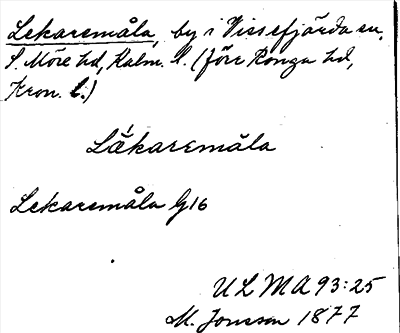 Lekaremåla, by i Vissefjärda sn,
S. Möre hd, Kalm. l. (förr Konga hd,
Kron. l.)
Läkaremåla
Lekaremåla G16
ULMA 93:25
M. Jonsson 1877